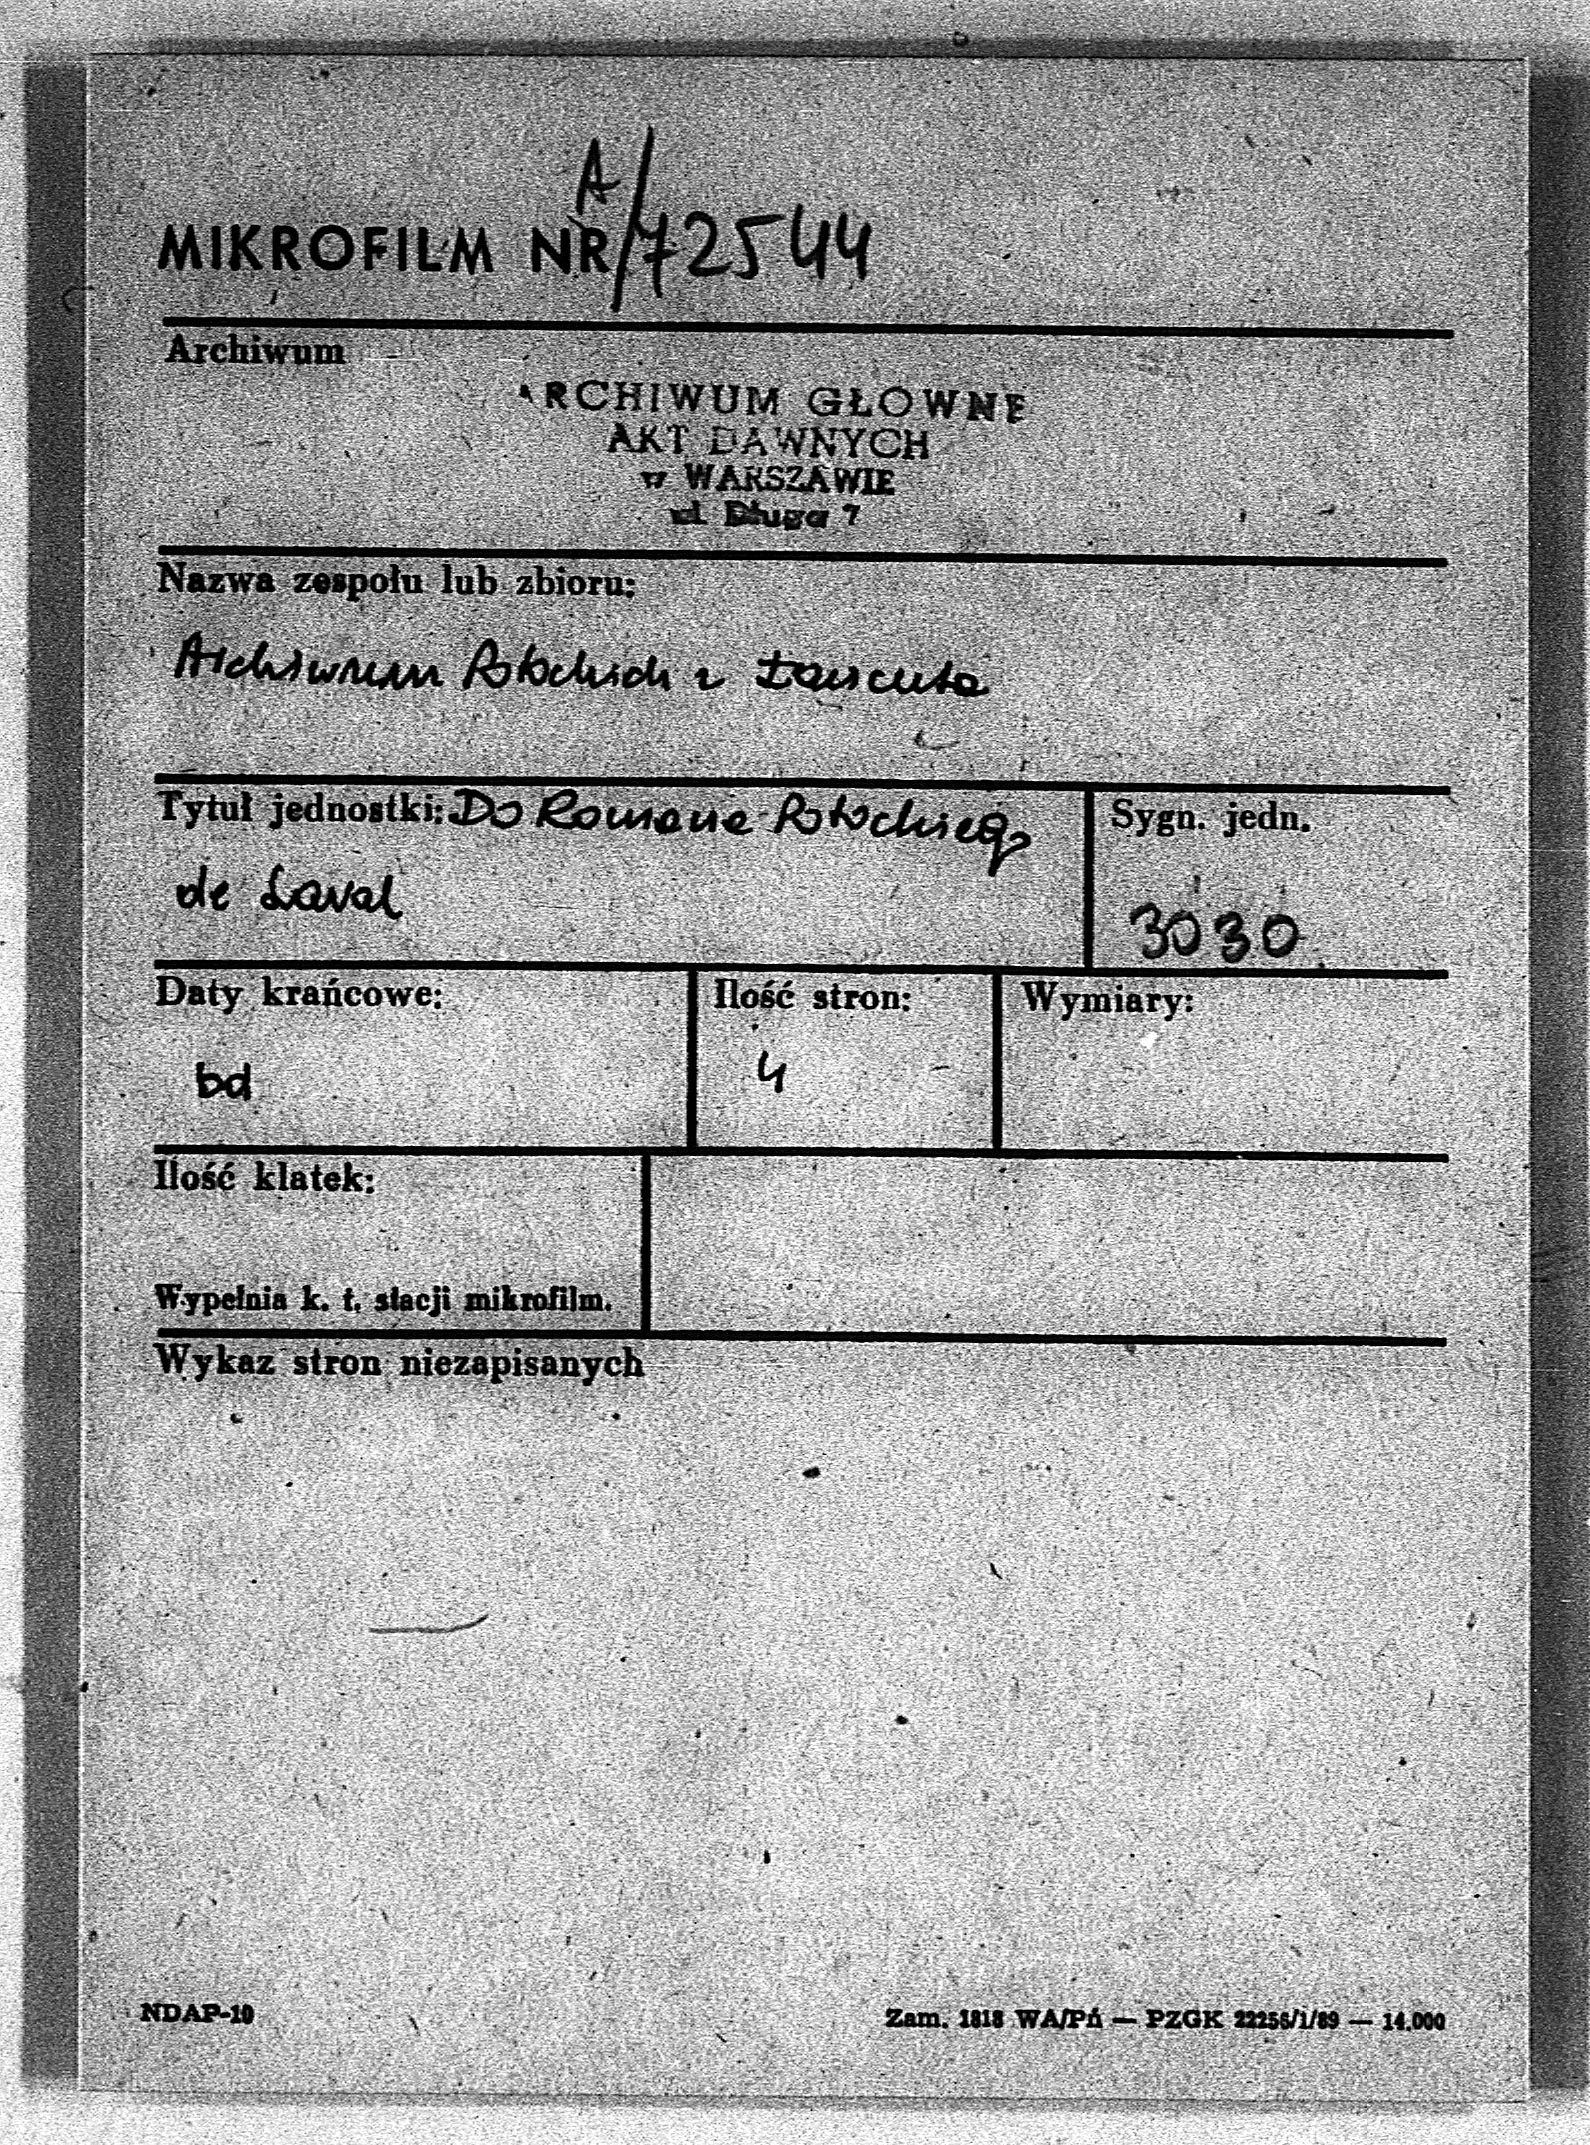 A/72544
MIKROFILM NR
Archiwum
ARCHIWUM GŁÓWNE
AKT DAWNYCH
w WARSZAWIE
ul. Długa 7
Nazwa zespołu lub zbioru:
Archiwum Potockich z Łańcuta
Tytuł jednostki: Do Romana Potockiego
de Laval
Sygn. jedn.
3030
Daty krańcowe:
bd
Ilość stron:
4
Wymiary:
Ilość klatek:
Wypełnia k. t. stacji mikrofilm.
Wykaz stron niezapisanych
NDAP-10
Zam. 1818 WA/Pń — PZGK 22256/i/89 — 14.000